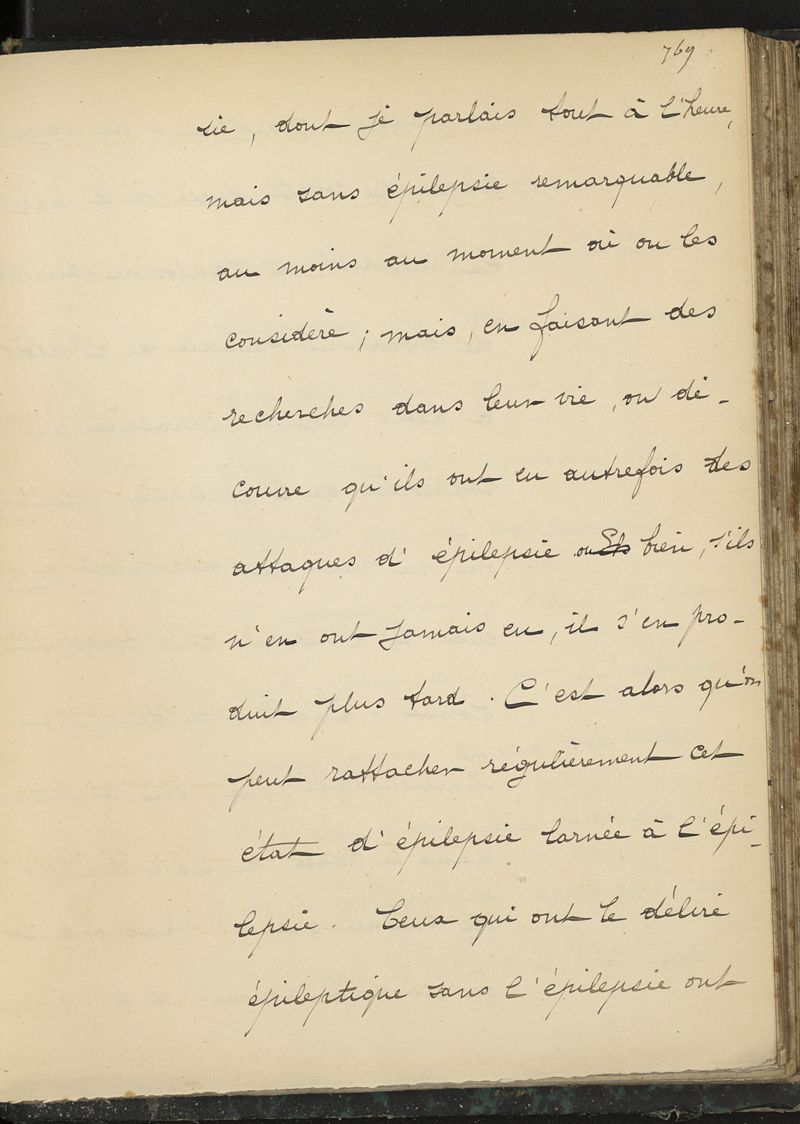 769
sie, dont je parlais tout à l'heure,
mais sans épilepsie remarquable,
au moins au moment où on les
considère ; mais, en faisant des
recherches dans leur vie, on dé-
couvre qu'ils ont eu autrefois des
attaques d'épilepsie ou bien, s'ils
n'en ont jamais eu, il s'en pro-
duit plus tard. C'est alors qu'on
peut rattacher régulièrement cet
état d'épilepsie larvée à l'épi-
lepsie. Ceux qui ont le délire
épileptique sans l'épilepsie ont